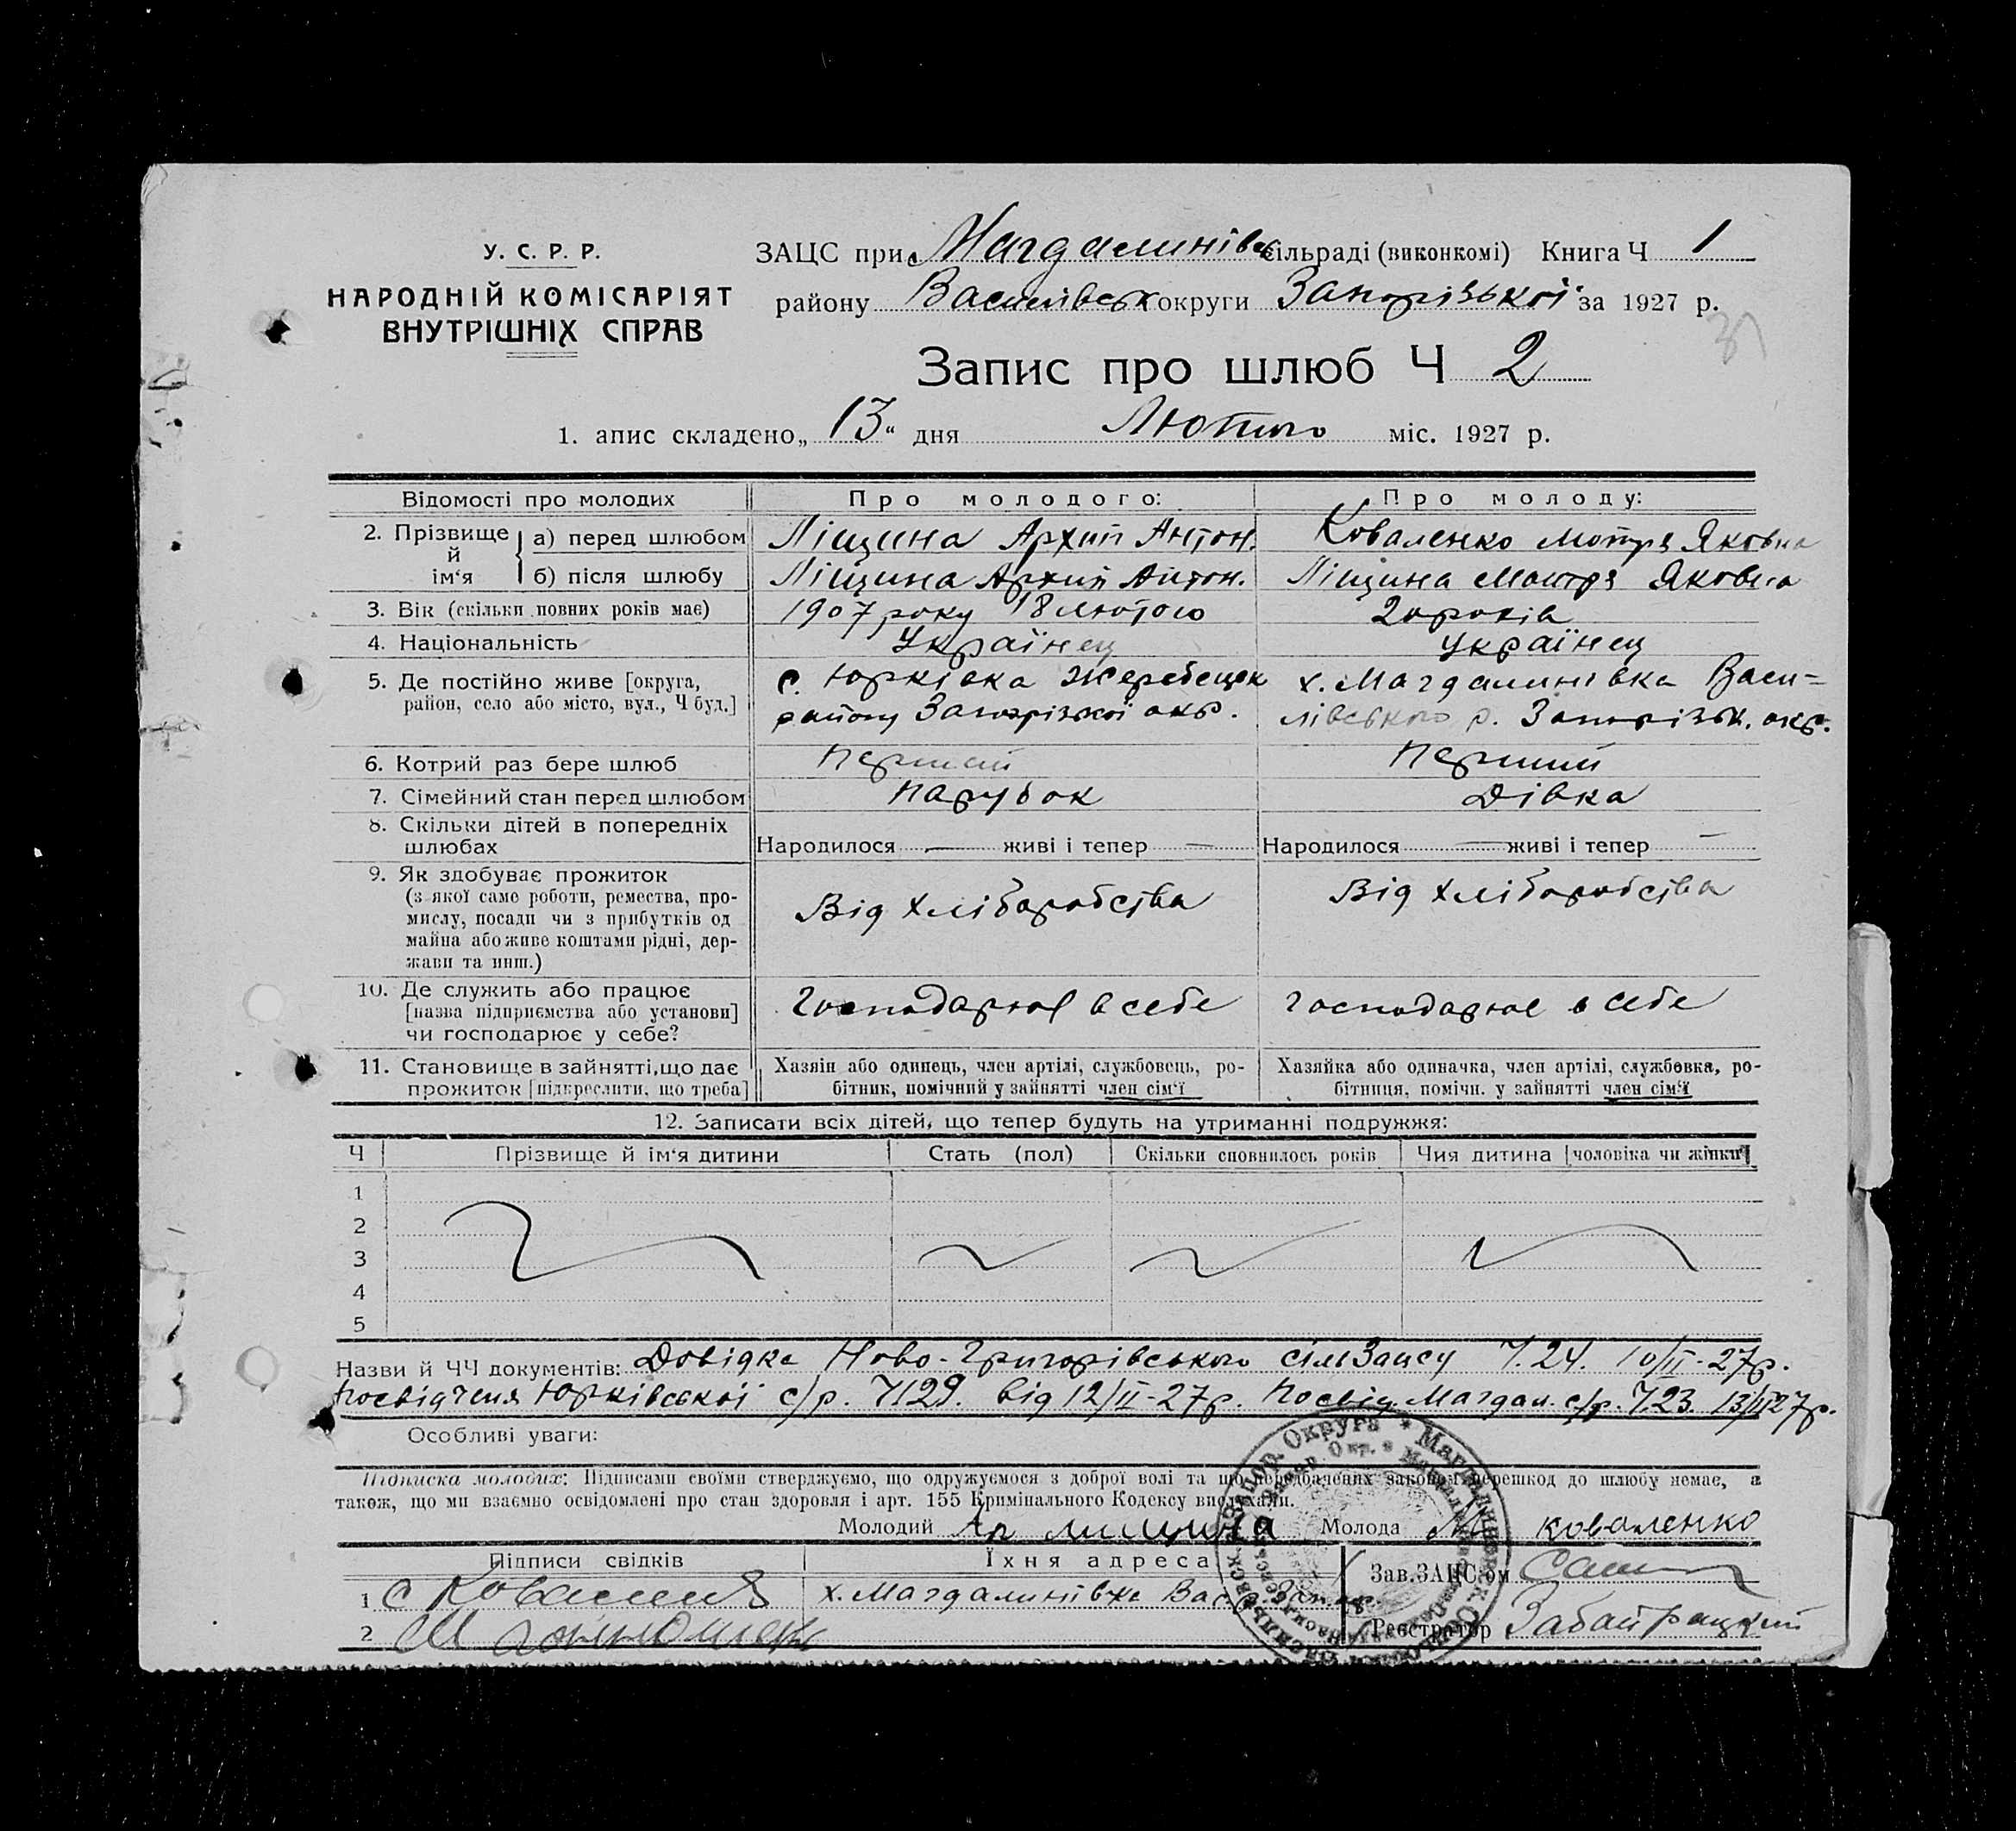 У. С. Р. Р.
НАРОДНІЙ КОМІСАРІЯТ
ВНУТРІШНІХ СПРАВ
ЗАЦС при Магдалинівськ сільраді (виконкомі) Книга Ч 1
району Василівськ округи Запорізької за 1927 р.
Запис про шлюб Ч 2
1. апис складено „13“ дня Лютого міс. 1927 р.
Відомості про молодих Про молодого: Про молоду:
2. Прізвище й ім‘я а) перед шлюбом Ліщина Архип Антон. Коваленко Мотря Яковна
б) після шлюбу Ліщина Архип Антон. Ліщина Мотря Яковна
3. Вік (скільки повних років має) 1907 року 18 лютого 20 років
4. Національність Українец Українец
5. Де постійно живе [округа, с. Юрківка Жеребецок х. Магдалинівка Васи=
район, село або місто, вул., Ч буд.] району Запорізької окр. лівського р. Запорізьк. окр.
6. Котрий раз бере шлюб Перший Перший
7. Сімейний стан перед шлюбом Парубок Дівка
8. Скільки дітей в попередніх
шлюбах Народилося — живі і тепер — Народилося — живі і тепер —
9. Як здобуває прожиток
(з якої саме роботи, ремества, про-
мислу, посади чи з прибутків од
майна або живе коштами рідні, дер-
жави та инш.)
Від хліборобства Від хліборобства
10. Де служить або працює
[назва підприємства або установи]
чи господарює у себе?
Господарює в себе Господарює в себе
11. Становище в зайнятті, що дає Хазяін або одинець, член артілі, службовець, ро- Хазяйка або одиначка, член артілі, службовка, ро-
прожиток [підкреслити, що треба] бітник, помічний у зайнятті член сім‘ї бітниця, помічн. у зайнятті член сім‘ї
12. Записати всіх дітей, що тепер будуть на утриманні подружжя:
Ч Прізвище й ім‘я дитини Стать (пол) Скільки сповнилось років Чия дитина [чоловіка чи жінки]
1
2
3
4
5
Назви й ЧЧ документів: Довідка Ново-Григорівського сільЗацсу Ч. 24. 10/II-27р.
Посвідченя Юрківської с/р. Ч129. від 12/II-27р. Посвід. Магдал. с/р. Ч.23. 13/II27р.
Особливі уваги:
Підписка молодих: Підписами своїми стверджуємо, що одружуємося з доброї волі та що передбачених законом перешкод до шлюбу немає, а
також, що ми взаємно освідомлені про стан здоровля і арт. 155 Кримінального Кодексу вислухали.
Молодий Ар Лищина Молода М Коваленко
Підписи свідків Їхня адреса Зав. ЗАЦС‘ом
1 С х. Магдалинівка Вас
2 Реєстратор